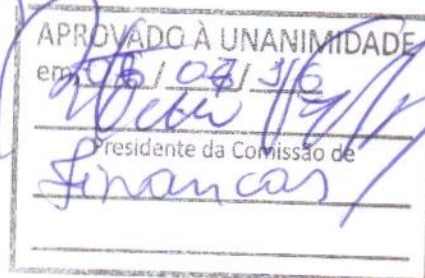 APROVADO À UNANIMIDADE
em / 04 / 16
Presidente da Comissão de
Finanças